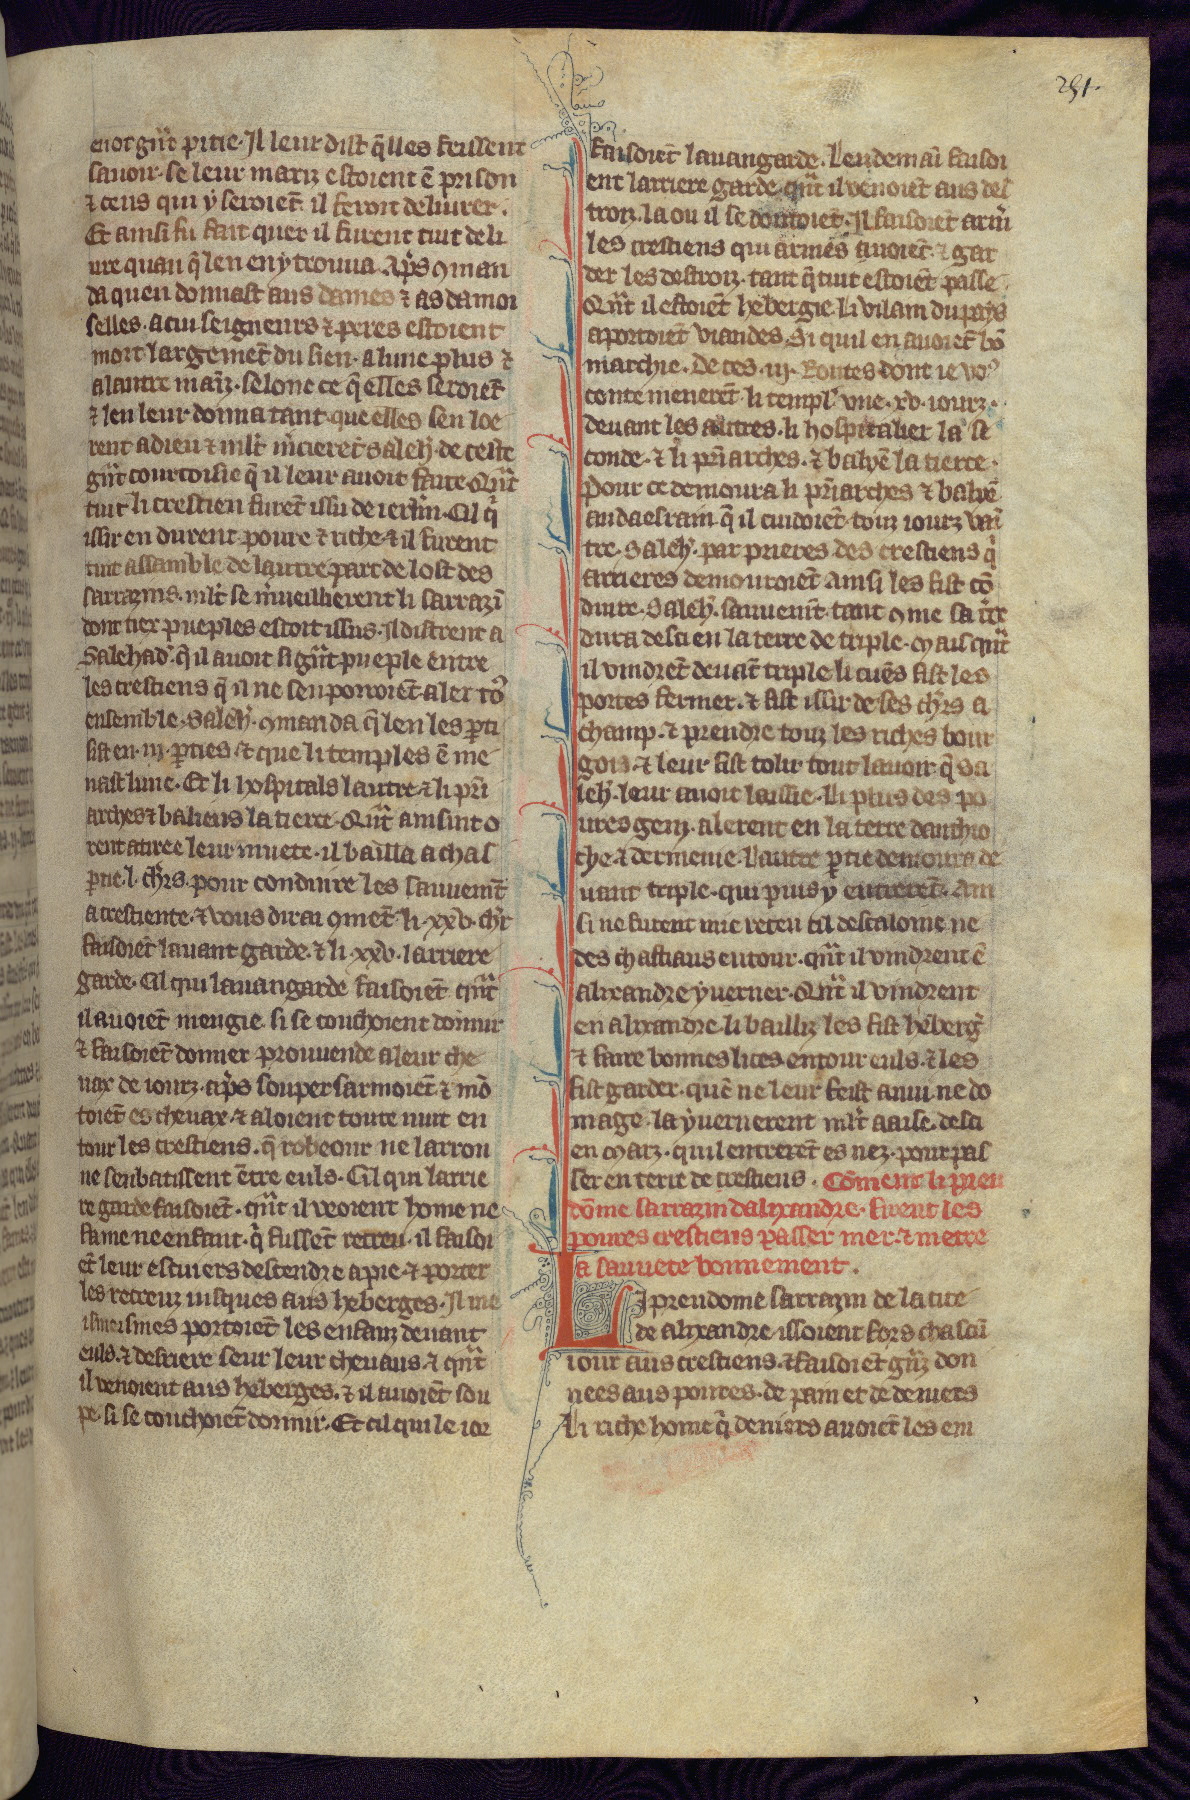 251.
en ot gñt pitie. Il leur dist q̃lles feissent
sauoir. se leur mariz estoient ẽ prison
⁊ ceus qui y seroiẽt il feroit deliurer.
Et ainsi fu fait quer il furent tuit deli
ure quan q̃ len en y trouua. Ap̃s ꝯman
da quen donnast aus dames ⁊ as damoi
selles. a cui seigneurs ⁊ peres estoient
mort largemẽt du sien. a lune plus ⁊
a lautre mains. selonc ce q̃ elles seroiẽt
⁊ len leur donna tant. que elles sen loe
rent a dieu ⁊ ml̃t m̃cierẽt saleh̃. de ceste
gñt courtoisie q̃ il leur auoit faite. Qñt
tuit li crestien furẽt issu de ierl̃m. Cil q̃
issir en durent poure ⁊ riche ⁊ il furent
tuit assamble de lautre part de lost des
sarrazins. ml̃t se m̃ueillierent li sarrazĩ
dont tiex pueples estoit issus. Il distrent a
Salehad̃. q̃ il auoit si gñt pueple entre
les crestiens q̃ il ne sen pouoiẽt aler to᷒
ensemble. Saleh̃. ꝯmanda q̃ len les ꝑti
sist en .iij. ꝑties. ⁊ que li temples ẽ me
nast lune. Et li hospitals lautre. ⁊ li pr̃i
arches ⁊ baliens la tierce. Qñt ainsint o
rent atiree leur muete. il bailla a chas
ꝑtie .l. ch̃rs. pour conduire les sauuem̃t
a crestiente. ⁊ vous dirai ꝯmẽt. li .xxv. ch̃r
faisoiẽt lauant garde. ⁊ li .xxv. larriere
garde. Cil qui lauangarde faisoiẽt qñt
il auoiẽt mengie. si se couchoient dormir
⁊ faisoiẽt donner prouuende a leur che
uax de iourz. ap̃s souper sarmoiẽt ⁊ mõ
toiẽt es cheuax. ⁊ aloient toute nuit en
tour les crestiens. q̃ robeour ne larron
ne senbatissent ẽtre euls. Cil qui larrie
re garde faisoiẽt. qñt il veoient home ne
fame ne enfant. q̃ fussẽt recreu. il faisoi
ẽt leur escuiers descendre a pie. ⁊ porter
les recreuz iusques aus heberges. Il me
ismes portoiẽt les enfanz deuant
euls. ⁊ derriere seur leur cheuaus. ⁊ qñt
il venoient aus heberges. ⁊ il auoiẽt sou
pe. si se couchoiẽt dormir. Et cil qui le ior
faisoiẽt lauangarde. Lendemaĩ faisoi
ent larriere garde. qñt il venoiẽt aus des
troiz. la ou il se doutoiẽt. Il faisoiẽt armr̃
les crestiens qui armes auoiẽt. ⁊ gar
der les destroiz. tant q̃ tuit estoiẽt passe.
Qñt il estoiẽt hebergie. li vilain du pays
aportoiẽt viandes. Si quil en auoiẽt bõ
marchie. De ces .iij. Routes dont ie vo᷒
conte menerẽt li templ̃ vne .xv. iourz.
deuant les autres. li hospitalier la se
conde. ⁊ li pr̃iarches. ⁊ balyẽ la tierce.
Pour ce demoura li pr̃iarches ⁊ balyẽ
au daesrain q̃ il cuidoiẽt touz iourz vaĩ
tre. Saleh̃. par prieres des crestiens q̃
arrieres demouroiẽt. ainsi les fist cõ
duire. Saleh̃. sauuem̃t. tant ꝯme sa t̃re
dura desci en la terre de triple. Mais qñt
il vindrẽt deuãt triple li cuẽs fist les
portes fermer. ⁊ fist issir de ses ch̃rs a
champ. ⁊ prendre touz les riches bour
gois. ⁊ leur fist tolir tout lauoir q̃ Sa
leh̃. leur auoit laissie. Li plus des po
ures genz. alerent en la terre danthio
che. ⁊ dermenie. Lautre ꝑtie demoura de
uant triple. qui puis y entrerẽt. Ain
si ne furent mie receu cil descalone ne
des chastiaus entour. qñt il vindrent ẽ
alixandre yuerner. Qñt il vindrent
en alixandre. li bailliz les fist heberg̃
⁊ faire bonnes lices entour euls. ⁊ les
fist garder. quẽ ne leur feist anui ne do
mage. la yuernerent ml̃t a aise. desci
en Marz. quil entrerẽt es nez. pour pas
ser en terre de crestiens. Cõment li preu
dõme sarrazin dalixandre. firent les
poures crestiens passer mer. ⁊ metre
a sauuete bonnement.
Li preudome sarrazin de la cite
de alixandre. issoient fors chascũ
iour aus crestiens. ⁊ faisoiẽt gñz don
nees aus poures. de pain et de deniers
Li riche home q̃ deniers auoiẽt les em